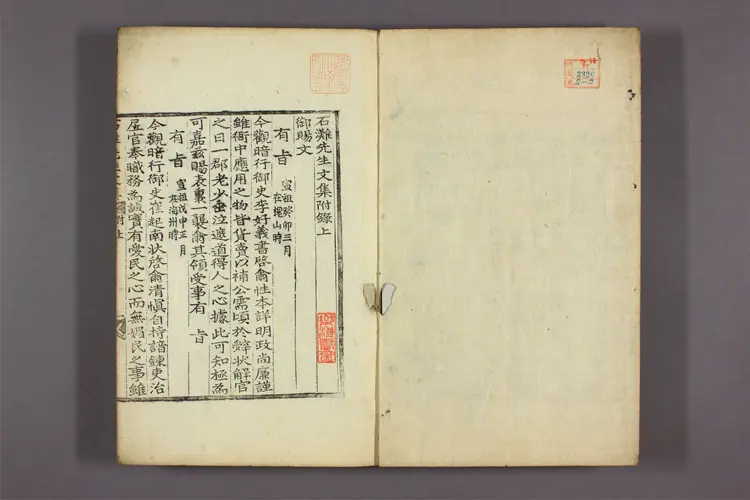 石灘先生文集附錄上
御賜文
有旨 宣祖癸卯三月在槐山時
今觀暗行御史李好義書啓禽性本詳明政尚廉謹
雖衙中應用之物皆貨賣以補公需頃於辭狀解官
之日一郡老少垂泣遮道得人之心據此可知極為
可嘉玆賜表裏一襲禽其領受事有 旨
有旨 宣祖戊申三月在海州時
今觀暗行御史崔起南狀啓禽清愼自持諳鍊吏治
居官奉職務為誠實有愛民之心而無媚民之事雖
2326
2-2